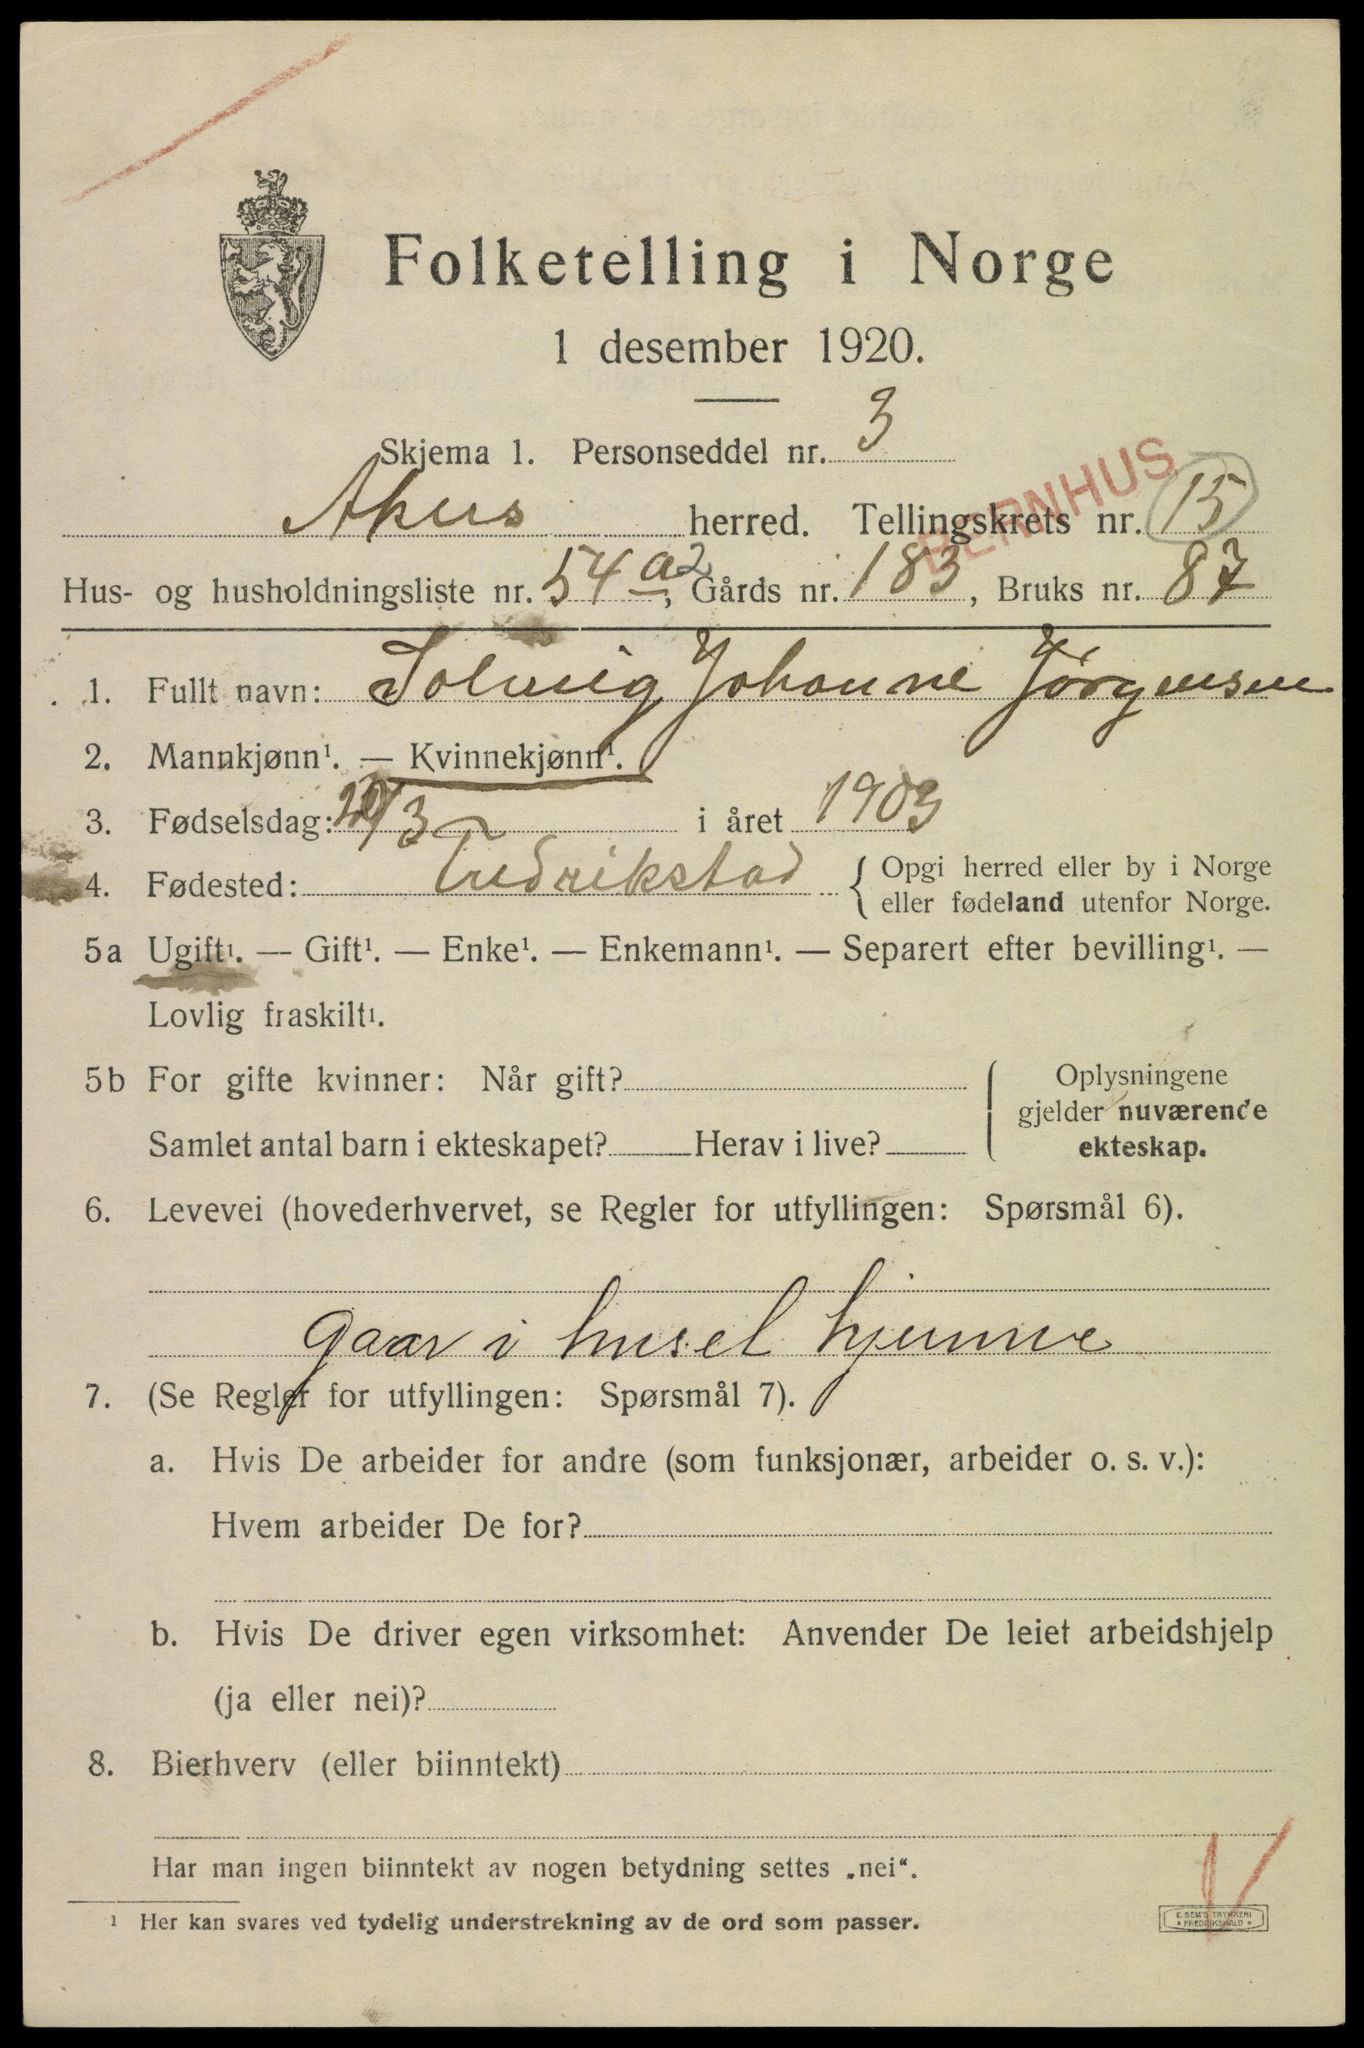 Folketelling i Norge
1 desember 1920.
Skjema 1. Personseddel nr. 3
Akers herred. Tellingskrets nr. 15
BERNHUS
Hus- og husholdningsliste nr. 54 a2, Gårds nr. 183, Bruks nr. 87
1. Fullt navn: Solveig Johanne Jörgensen
2. Mannkjønn¹. — Kvinnekjønn¹.
3. Fødselsdag: 20/3 i året 1903
4. Fødested: Fredrikstad { Opgi herred eller by i Norge
eller fødeland utenfor Norge.
5a Ugift¹. — Gift¹. — Enke¹. — Enkemann¹. — Separert efter bevilling¹. —
Lovlig fraskilt¹.
5b For gifte kvinner: Når gift?
Samlet antal barn i ekteskapet? Herav i live?
Oplysningene
gjelder nuværende
ekteskap.
6. Levevei (hovederhvervet, se Regler for utfyllingen: Spørsmål 6).
Gaar i huset hjemme
7. (Se Regler for utfyllingen: Spørsmål 7).
a. Hvis De arbeider for andre (som funksjonær, arbeider o. s. v.):
Hvem arbeider De for?
b. Hvis De driver egen virksomhet: Anvender De leiet arbeidshjelp
(ja eller nei)?
8. Bierhverv (eller biinntekt)
Har man ingen biinntekt av nogen betydning settes „nei“.
¹ Her kan svares ved tydelig understrekning av de ord som passer.
E. SEM'S TRYKKERI
* FREDRIKSHALD *